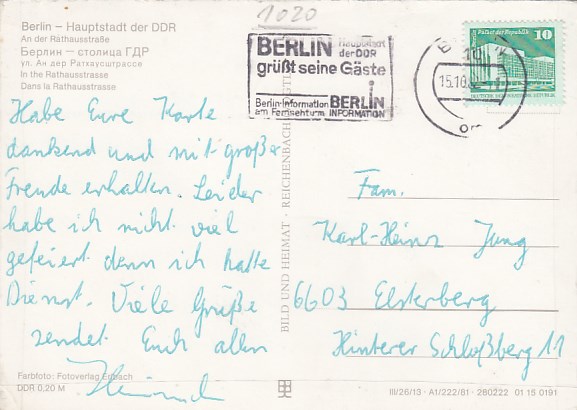 1020
Berlin – Hauptstadt der DDR
An der Rathausstraße
Берлин – столица ГДР
ул. Ан дер Ратхаусштрассе
In the Rathausstrasse
Dans la Rathausstrasse
BERLIN Hauptstadt
der DDR
grüßt seine Gäste
Berlin-Information
am Fernsehturm
BERLIN
INFORMATION
15.10
Palast der Republik 10
Habe Eure Karte
dankend und mit großer
Freude erhalten. Leider
habe ich nicht viel
gefeiert denn ich hatte
Dienst. Viele Grüße
sendet Euch allen
BILD UND HEIMAT · REICHENBACH
Fam.
Karl-Heinz Jung
6603 Elsterberg
Hinterer Schloßberg 11
Farbfoto: Fotoverlag Erbach
DDR 0,20 M
III/26/13 · A1/222/81 · 280222 01 15 0191